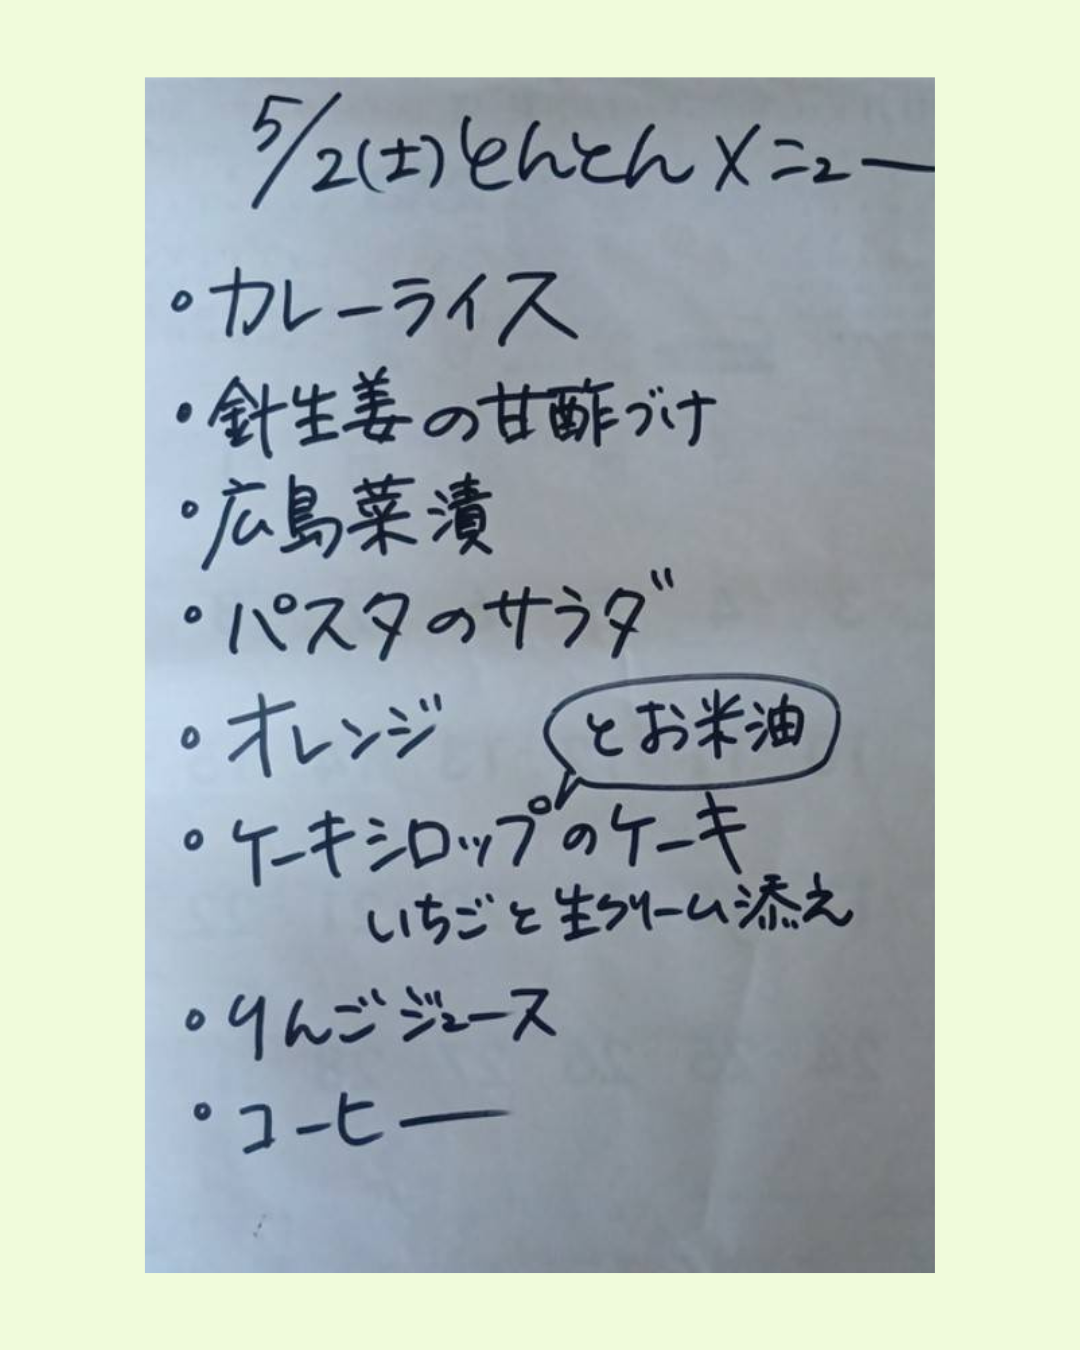 5/2(土)とんとんメニュー
・カレーライス
・針生姜の甘酢づけ
・広島菜漬
・パスタのサラダ
・オレンジ
とお米油
・ケーキシロップのケーキ
いちごと生クリーム添え
・りんごジュース
・コーヒー